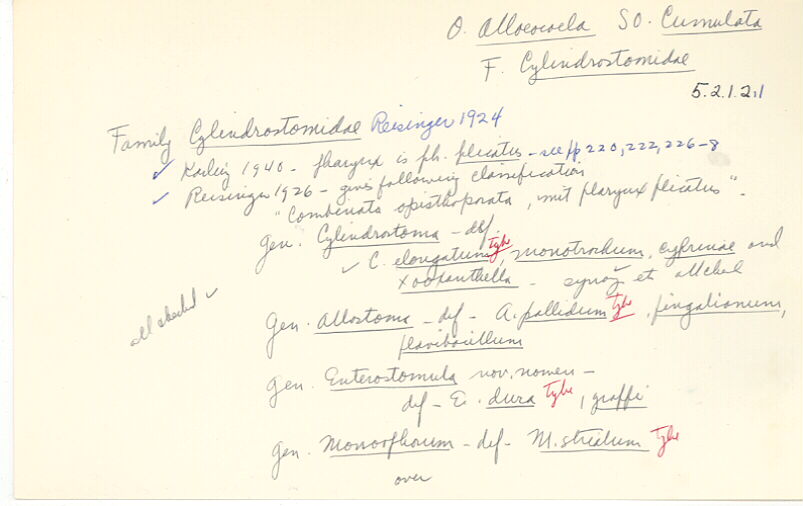 O. Alloeocoela SO. Cumulata
F. Cylindrostomidae
5.2.1.2.1
Family Cylindrostomidae Reisinger 1924
✓ Karling 1940 - pharynx is ph. plicatus - see pp 220, 222, 226-8
✓ Reisinger 1926 - gives following classification
"Combinata opisthoporata, mit pharynx plicatus".
Gen. Cylindrostoma - def.
✓ C. elongatum type, monotrochum, cyprinae and
xooxanthella - et
all checked ✓
Gen. Allostoma - def - A. pallidum type, fingalianum,
flavibacillum
Gen. Enterostomula nov. nomen -
def - E. dura type, graffi
Gen. Monoophorum - def - M. striatum type
over